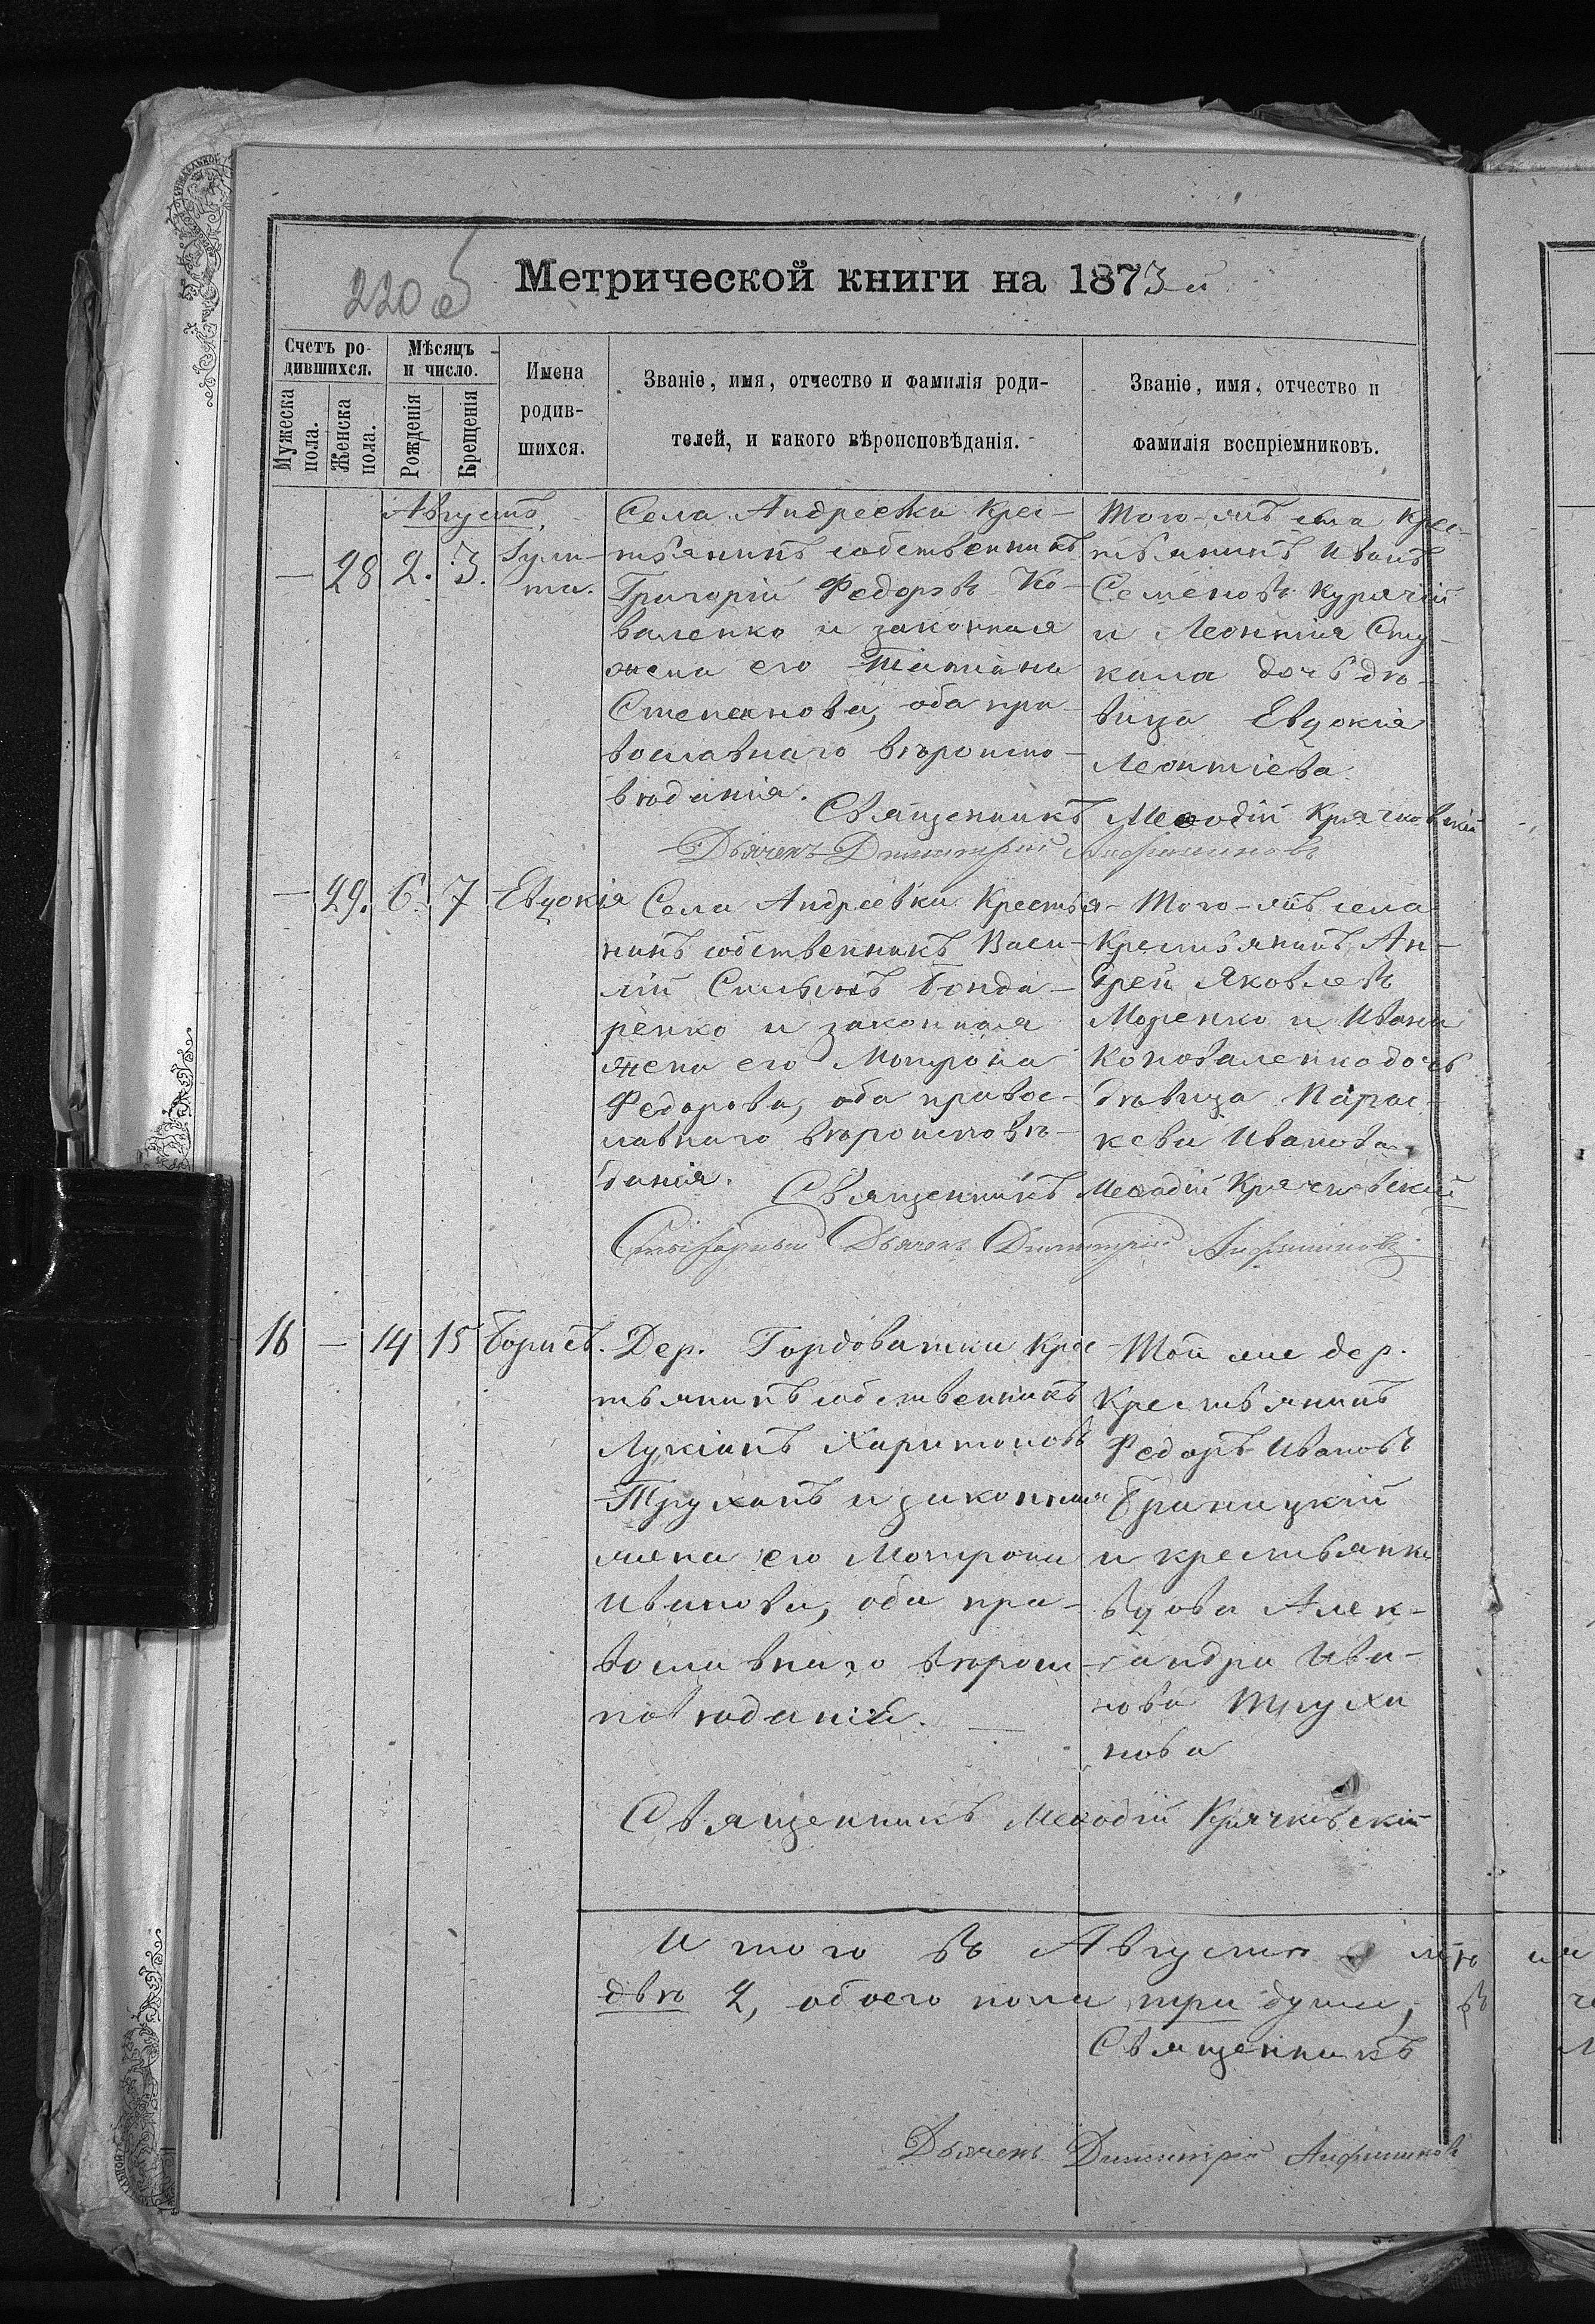 220 об
Метрической книги на 1873 й
Счетъ ро-
дившихся.
Мужеска пола.
Женска пола.
Мѣсяцъ и число.
Рожденія
Крещенія
Имена родив-
шихся.
Званіе, имя, отчество и фамилія роди-
телей, и какого вѣроисповѣданія.
Званіе, имя, отчество и
фамилія воспріемниковъ.
Августъ.
— 28 2. 3. Іули-
та.
Села Андреевки крес-
тьянинъ собственникъ
Григорій Федоровъ Ко-
валенко и законная
жена его Татіана
Степанова, оба пра-
вославнаго вѣроиспо-
вѣданія.
Того-жъ села крес-
тьянинъ Иванъ
Семеновъ Курячій
и Леонтія Сту-
кала дочь дѣ-
вица Евдокія
Леонтіева
Священникъ Меѳодій Крячковскій
Дьячекъ Димитрій
— 29. 6. 7 Евдокія
Села Андреевки Крестья-
нинъ собственникъ Васи-
лій Бонда-
ренко и законная
жена его Мотрона
Федорова, оба правос-
лавнаго вѣроисповѣ-
данія.
Того-жъ села
Крестьянинъ Ан-
дрей Яковлевъ
Моренко и Ивана
Коноваленко дочь
дѣвица Парас-
кева Иванова.
Священникъ Меѳодій Крячковскій
Дьячекъ Димитрій
16 — 14 15 Борисъ.
Дер. Гордоватки Крес-
тьянинъ собственникъ
Лукіанъ Харитоновъ
Труханъ и законная
жена его Мотрона
Иванова, оба пра-
вославнаго вѣроис-
повѣданія. —
Той же дер.
Крестьянинъ
Федоръ Ивановъ
Браницкій
и крестьянка
вдова Алек-
сандра Ива-
нова Труха
нова
Священникъ Меѳодій Крячковскій
Итого въ Августѣ м-цѣ
двѣ 2, обоего пола три души, въ
Священникъ
Дьячекъ Димитрій